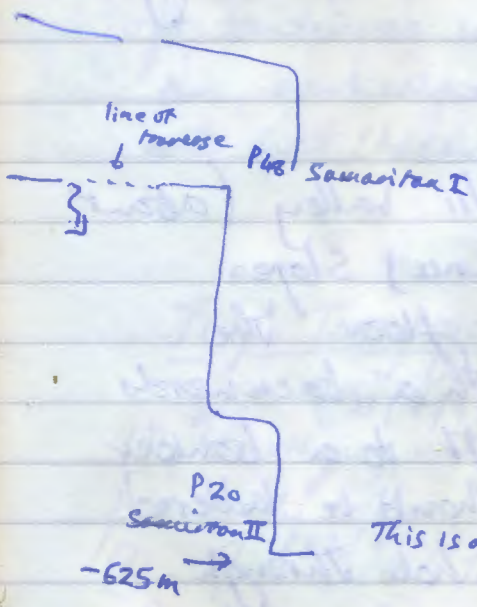 line of
traverse
P48 Samaritan I
P20
Samaritan II
This is a
-625m